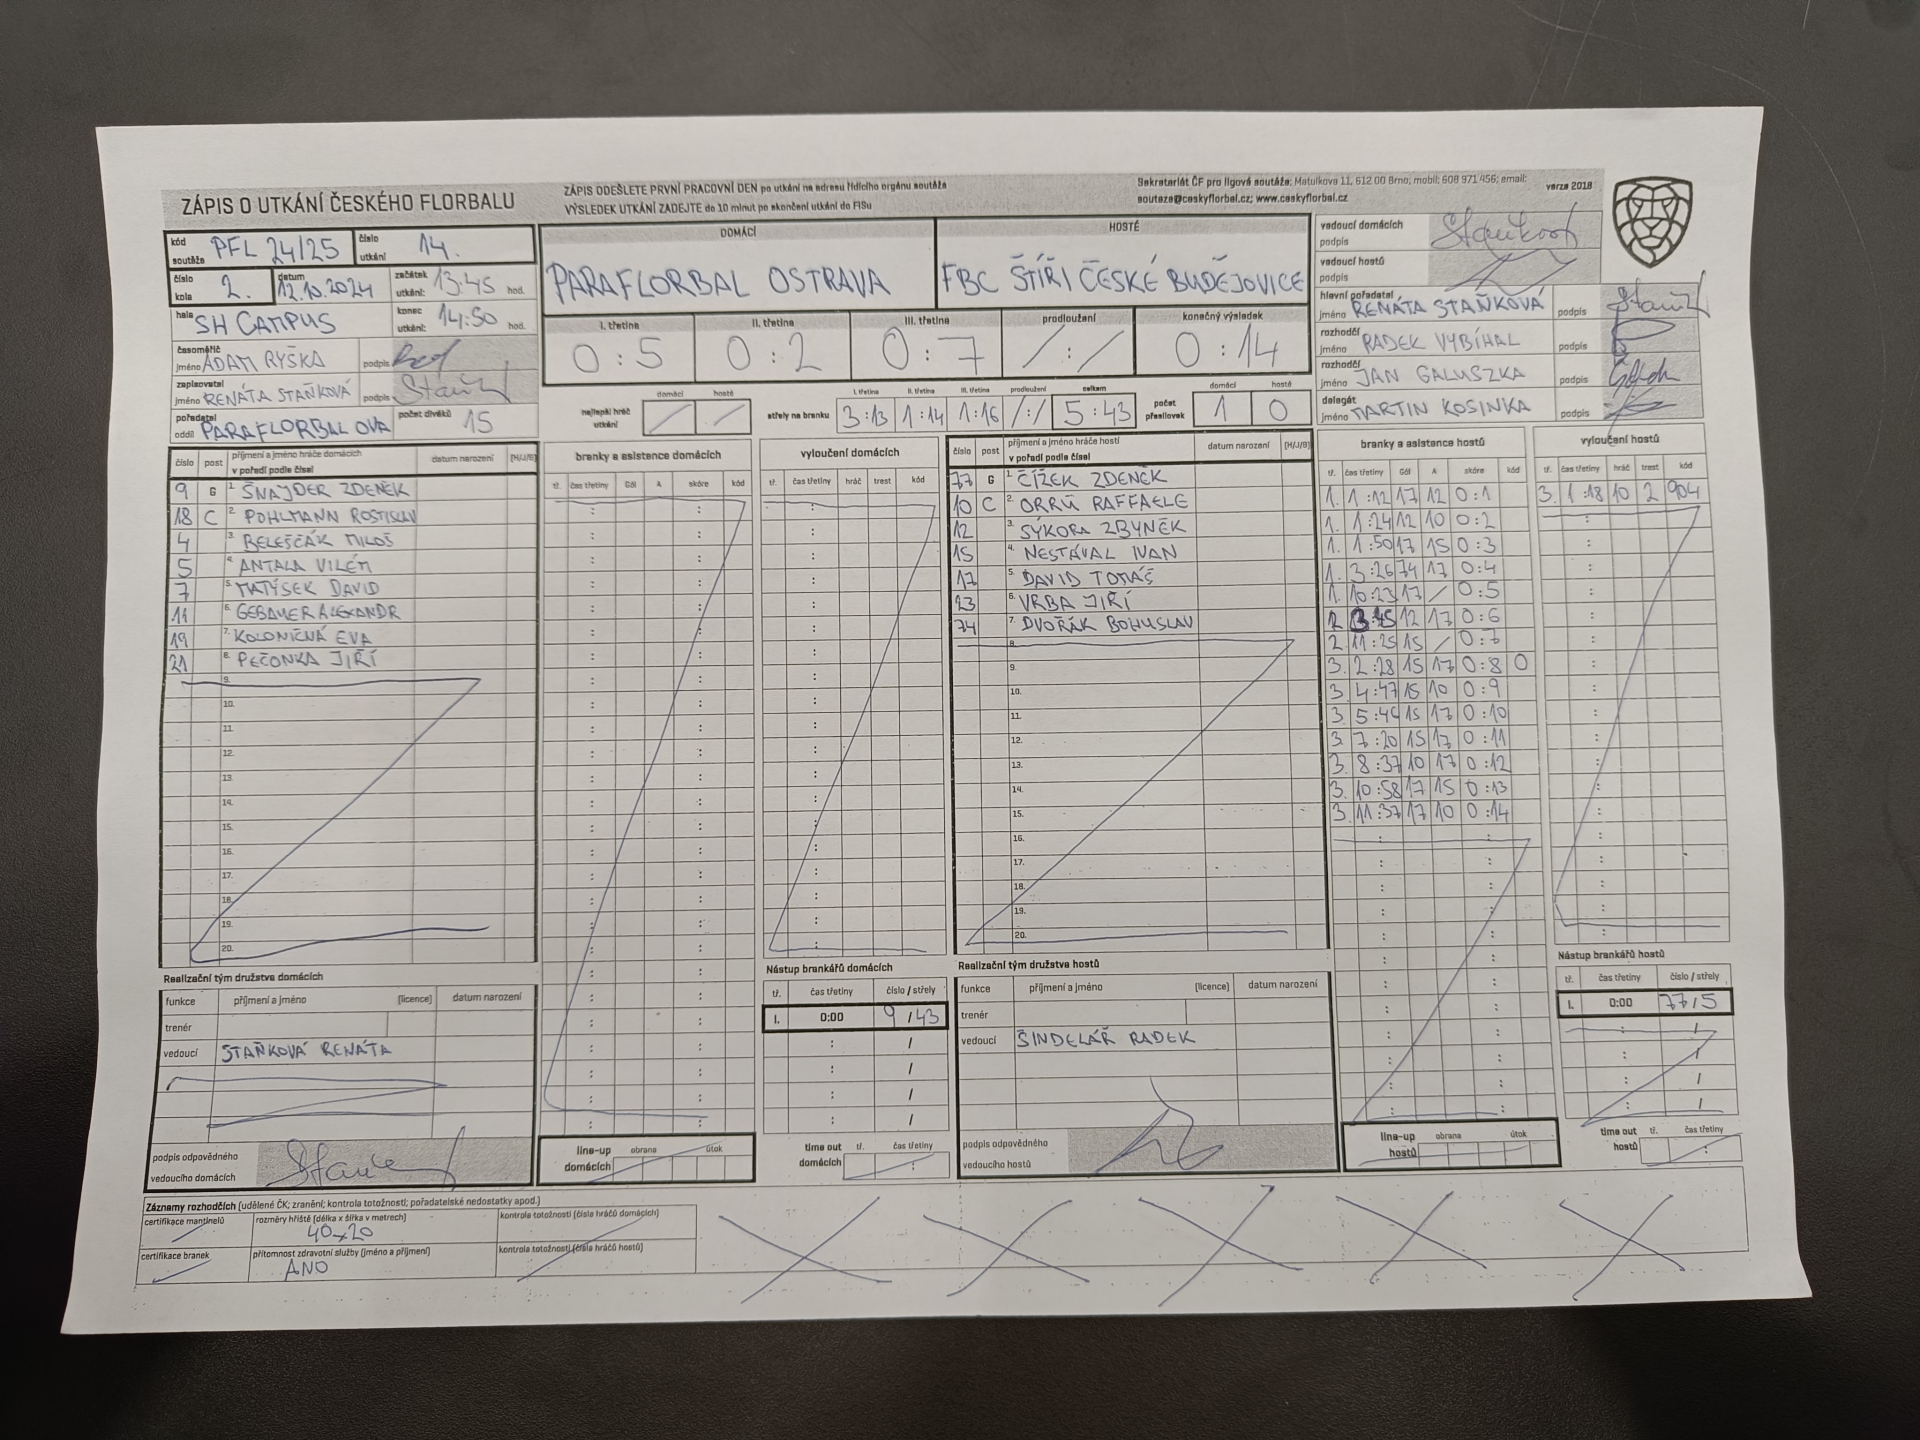 ZÁPIS O UTKÁNÍ ČESKÉHO FLORBALU
ZÁPIS ODEŠLETE PRVNÍ PRACOVNÍ DEN po utkání na adresu řídícího orgánu soutěže
VÝSLEDEK UTKÁNÍ ZADEJTE do 10 minut po skončení utkání do FISu
Sekretariát ČF pro ligová soutěže; Matulkova 11, 612 00 Brno; mobil: 608 971 456; email:
soutaze@ceskyflorbal.cz; www.ceskyflorbal.cz
verze 2018
kód soutěže PFL 24/25 číslo utkání 14.
číslo kola 2. datum 12.10.2024 začátek utkání: 13:45 hod.
hala SH CAMPUS konec utkání: 14:50 hod.
časoměřič jméno ADAM RYŠKA podpis
zapisovatel jméno RENÁTA STAŇKOVÁ podpis
pořadatel oddíl PARAFLORBAL OVA počet diváků 15
DOMÁCÍ HOSTÉ
PARAFLORBAL OSTRAVA FBC ŠTÍŘI ČESKÉ BUDĚJOVICE
I. třetina II. třetina III. třetina prodloužení konečný výsledek
0 : 5 0 : 2 0 : 7 / : / 0 : 14
nejlepší hráč utkání domácí / hosté /
střely na branku I. třetina 3:13 II. třetina 1:14 III. třetina 1:16 prodloužení /:/ celkem 5:43
počet přesilovek domácí 1 hosté 0
vedoucí domácích podpis
vedoucí hostů podpis
hlavní pořadatel jméno RENÁTA STAŇKOVÁ podpis
rozhodčí jméno RADEK VYBÍHAL podpis
rozhodčí jméno JAN GALUSZKA podpis
delegát jméno MARTIN KOSINKA podpis
číslo post příjmení a jméno hráče domácích v pořadí podle čísel datum narození (H/J/B)
9 G 1. ŠNAJDER ZDENĚK
18 C 2. POHLMANN ROSTISLAV
4 3. BELEŠČÁK MILOŠ
5 4. ANTALA VILÉM
7 5. MATÝSEK DAVID
11 6. GEBAUER ALEXANDR
19 7. KOLONIČNÁ EVA
21 8. PEČONKA JIŘÍ
9.
10.
11.
12.
13.
14.
15.
16.
17.
18.
19.
20.
branky a asistence domácích
tř. čas třetiny Gól A skóre kód
vyloučení domácích
tř. čas třetiny hráč trest kód
číslo post příjmení a jméno hráče hostí v pořadí podle čísel datum narození (H/J/B)
77 G 1. ČÍŽEK ZDENĚK
10 C 2. ORRŮ RAFFAELE
12 3. SÝKORA ZBYNĚK
15 4. NESTÁVAL IVAN
17 5. DAVID TOMÁŠ
23 6. VRBA JIŘÍ
74 7. DVOŘÁK BOHUSLAV
8.
9.
10.
11.
12.
13.
14.
15.
16.
17.
18.
19.
20.
branky a asistence hostů
tř. čas třetiny Gól A skóre kód
1. 1:12 17 12 0:1
1. 1:24 12 10 0:2
1. 1:50 17 15 0:3
1. 3:26 74 17 0:4
1. 10:23 17 / 0:5
2 3:45 12 17 0:6
2 11:25 15 / 0:7
3. 2:28 15 17 0:8 0
3 4:47 15 10 0:9
3. 5:46 15 17 0:10
3. 7:20 15 17 0:11
3. 8:37 10 17 0:12
3. 10:58 17 15 0:13
3. 11:37 17 10 0:14
vyloučení hostů
tř. čas třetiny hráč trest kód
3. 1:18 10 2 904
Realizační tým družstva domácích
funkce příjmení a jméno (licence) datum narození
trenér
vedoucí STAŇKOVÁ RENÁTA
podpis odpovědného vedoucího domácích
line-up domácích obrana útok
Nástup brankářů domácích
tř. čas třetiny číslo / střely
I. 0:00 9 / 43
time out domácích tř. čas třetiny
Realizační tým družstva hostů
funkce příjmení a jméno (licence) datum narození
trenér
vedoucí ŠINDELÁŘ RADEK
podpis odpovědného vedoucího hostů
line-up hostů obrana útok
Nástup brankářů hostů
tř. čas třetiny číslo / střely
I. 0:00 77 / 5
time out hostů tř. čas třetiny
Záznamy rozhodčích (udělené ČK; zranění; kontrola totožnosti; pořadatelské nedostatky apod.)
certifikace mantinelů rozměry hřiště (délka x šířka v metrech) 40x20 kontrola totožnosti (čísla hráčů domácích)
certifikace branek přítomnost zdravotní služby (jméno a příjmení) ANO kontrola totožnosti (čísla hráčů hostů)